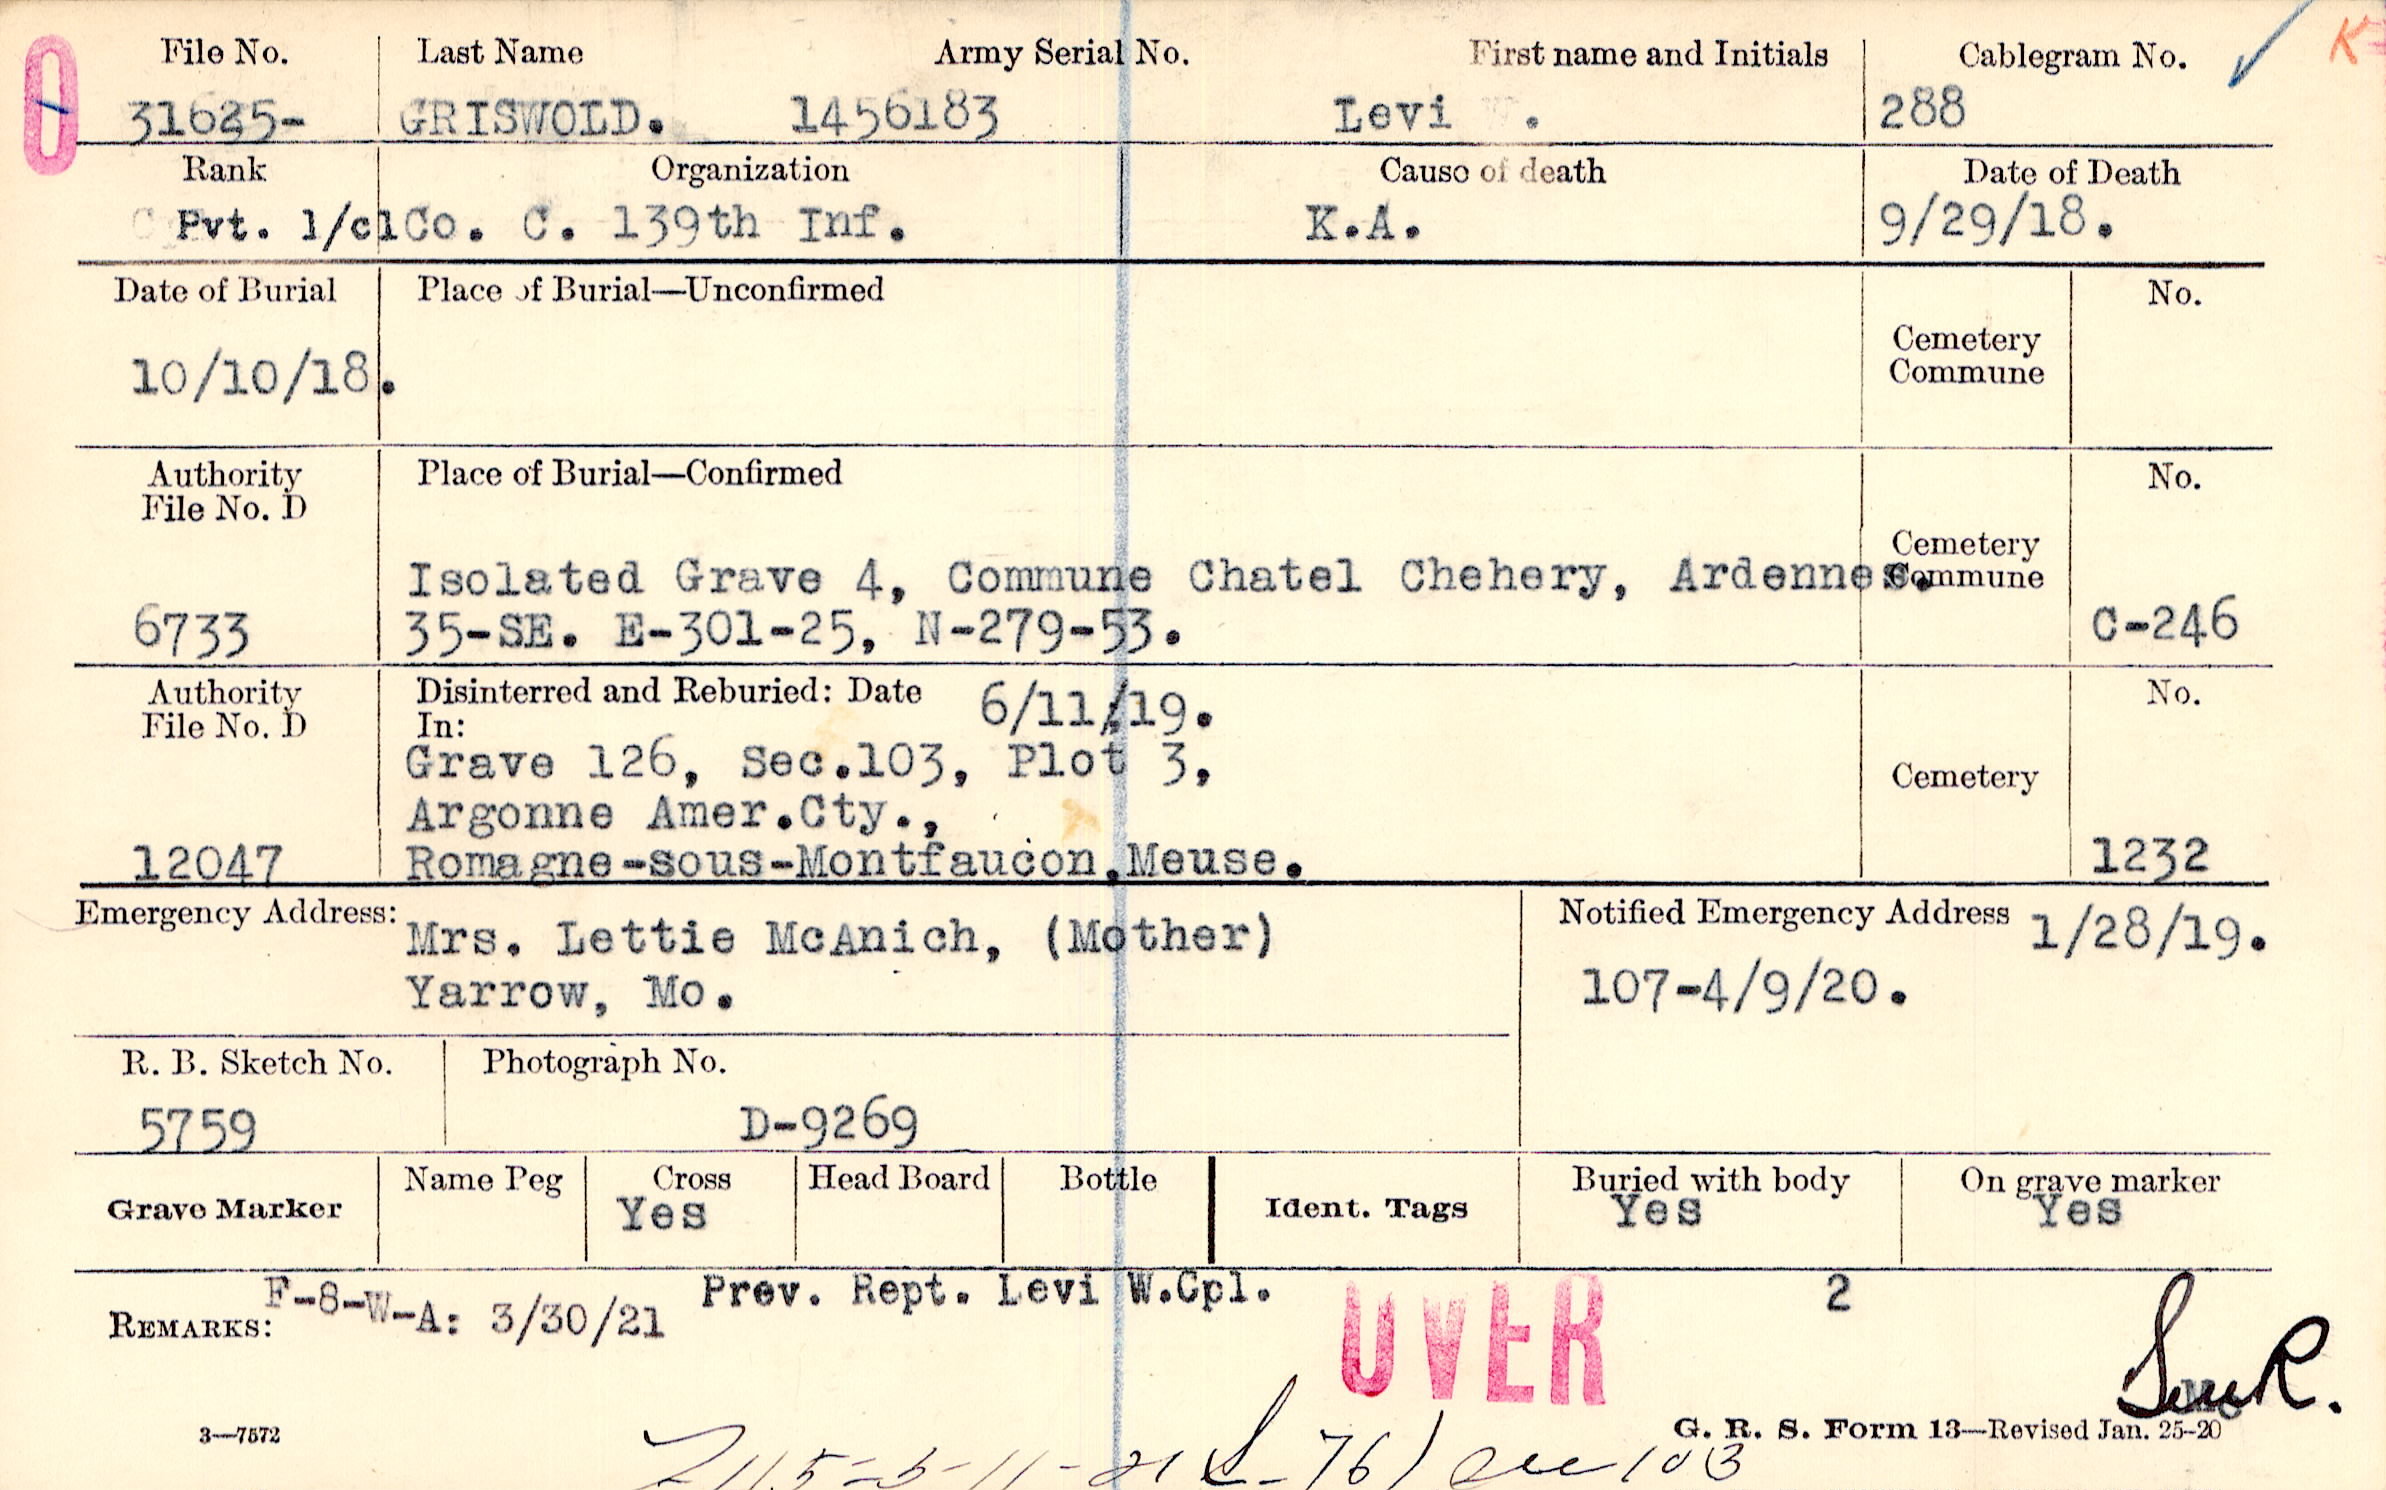 File No. Last Name Army Serial No. First name and Initials Cablegram No. K
0 31625- GRISWOLD. 1456183 Levi . 288
Rank Organization Cause of death Date of Death
Pvt. 1/cl Co. C. 139th Inf. K.A. 9/29/18.
Date of Burial Place of Burial—Unconfirmed No.
Cemetery
Commune
10/10/18.
Authority Place of Burial—Confirmed No.
File No. D
Cemetery
Commune
Isolated Grave 4, Commune Chatel Chehery, Ardennes.
6733 35-SE. E-301-25, N-279-53. C-246
Authority Disinterred and Reburied: Date 6/11/19. No.
File No. D In:
Grave 126, Sec.103, Plot 3,
Cemetery
Argonne Amer.Cty.,
12047 Romagne-sous-Montfaucon,Meuse. 1232
Emergency Address: Mrs. Lettie McAnich, (Mother) Notified Emergency Address 1/28/19.
Yarrow, Mo. 107-4/9/20.
R. B. Sketch No. Photograph No.
5759 D-9269
Grave Marker Name Peg Cross Head Board Bottle Ident. Tags Buried with body On grave marker
Yes Yes Yes
REMARKS: F-8-W-A: 3/30/21 Prev. Rept. Levi W.Cpl. 2
OVER
3—7572 G. R. S. Form 13—Revised Jan. 25-20
103